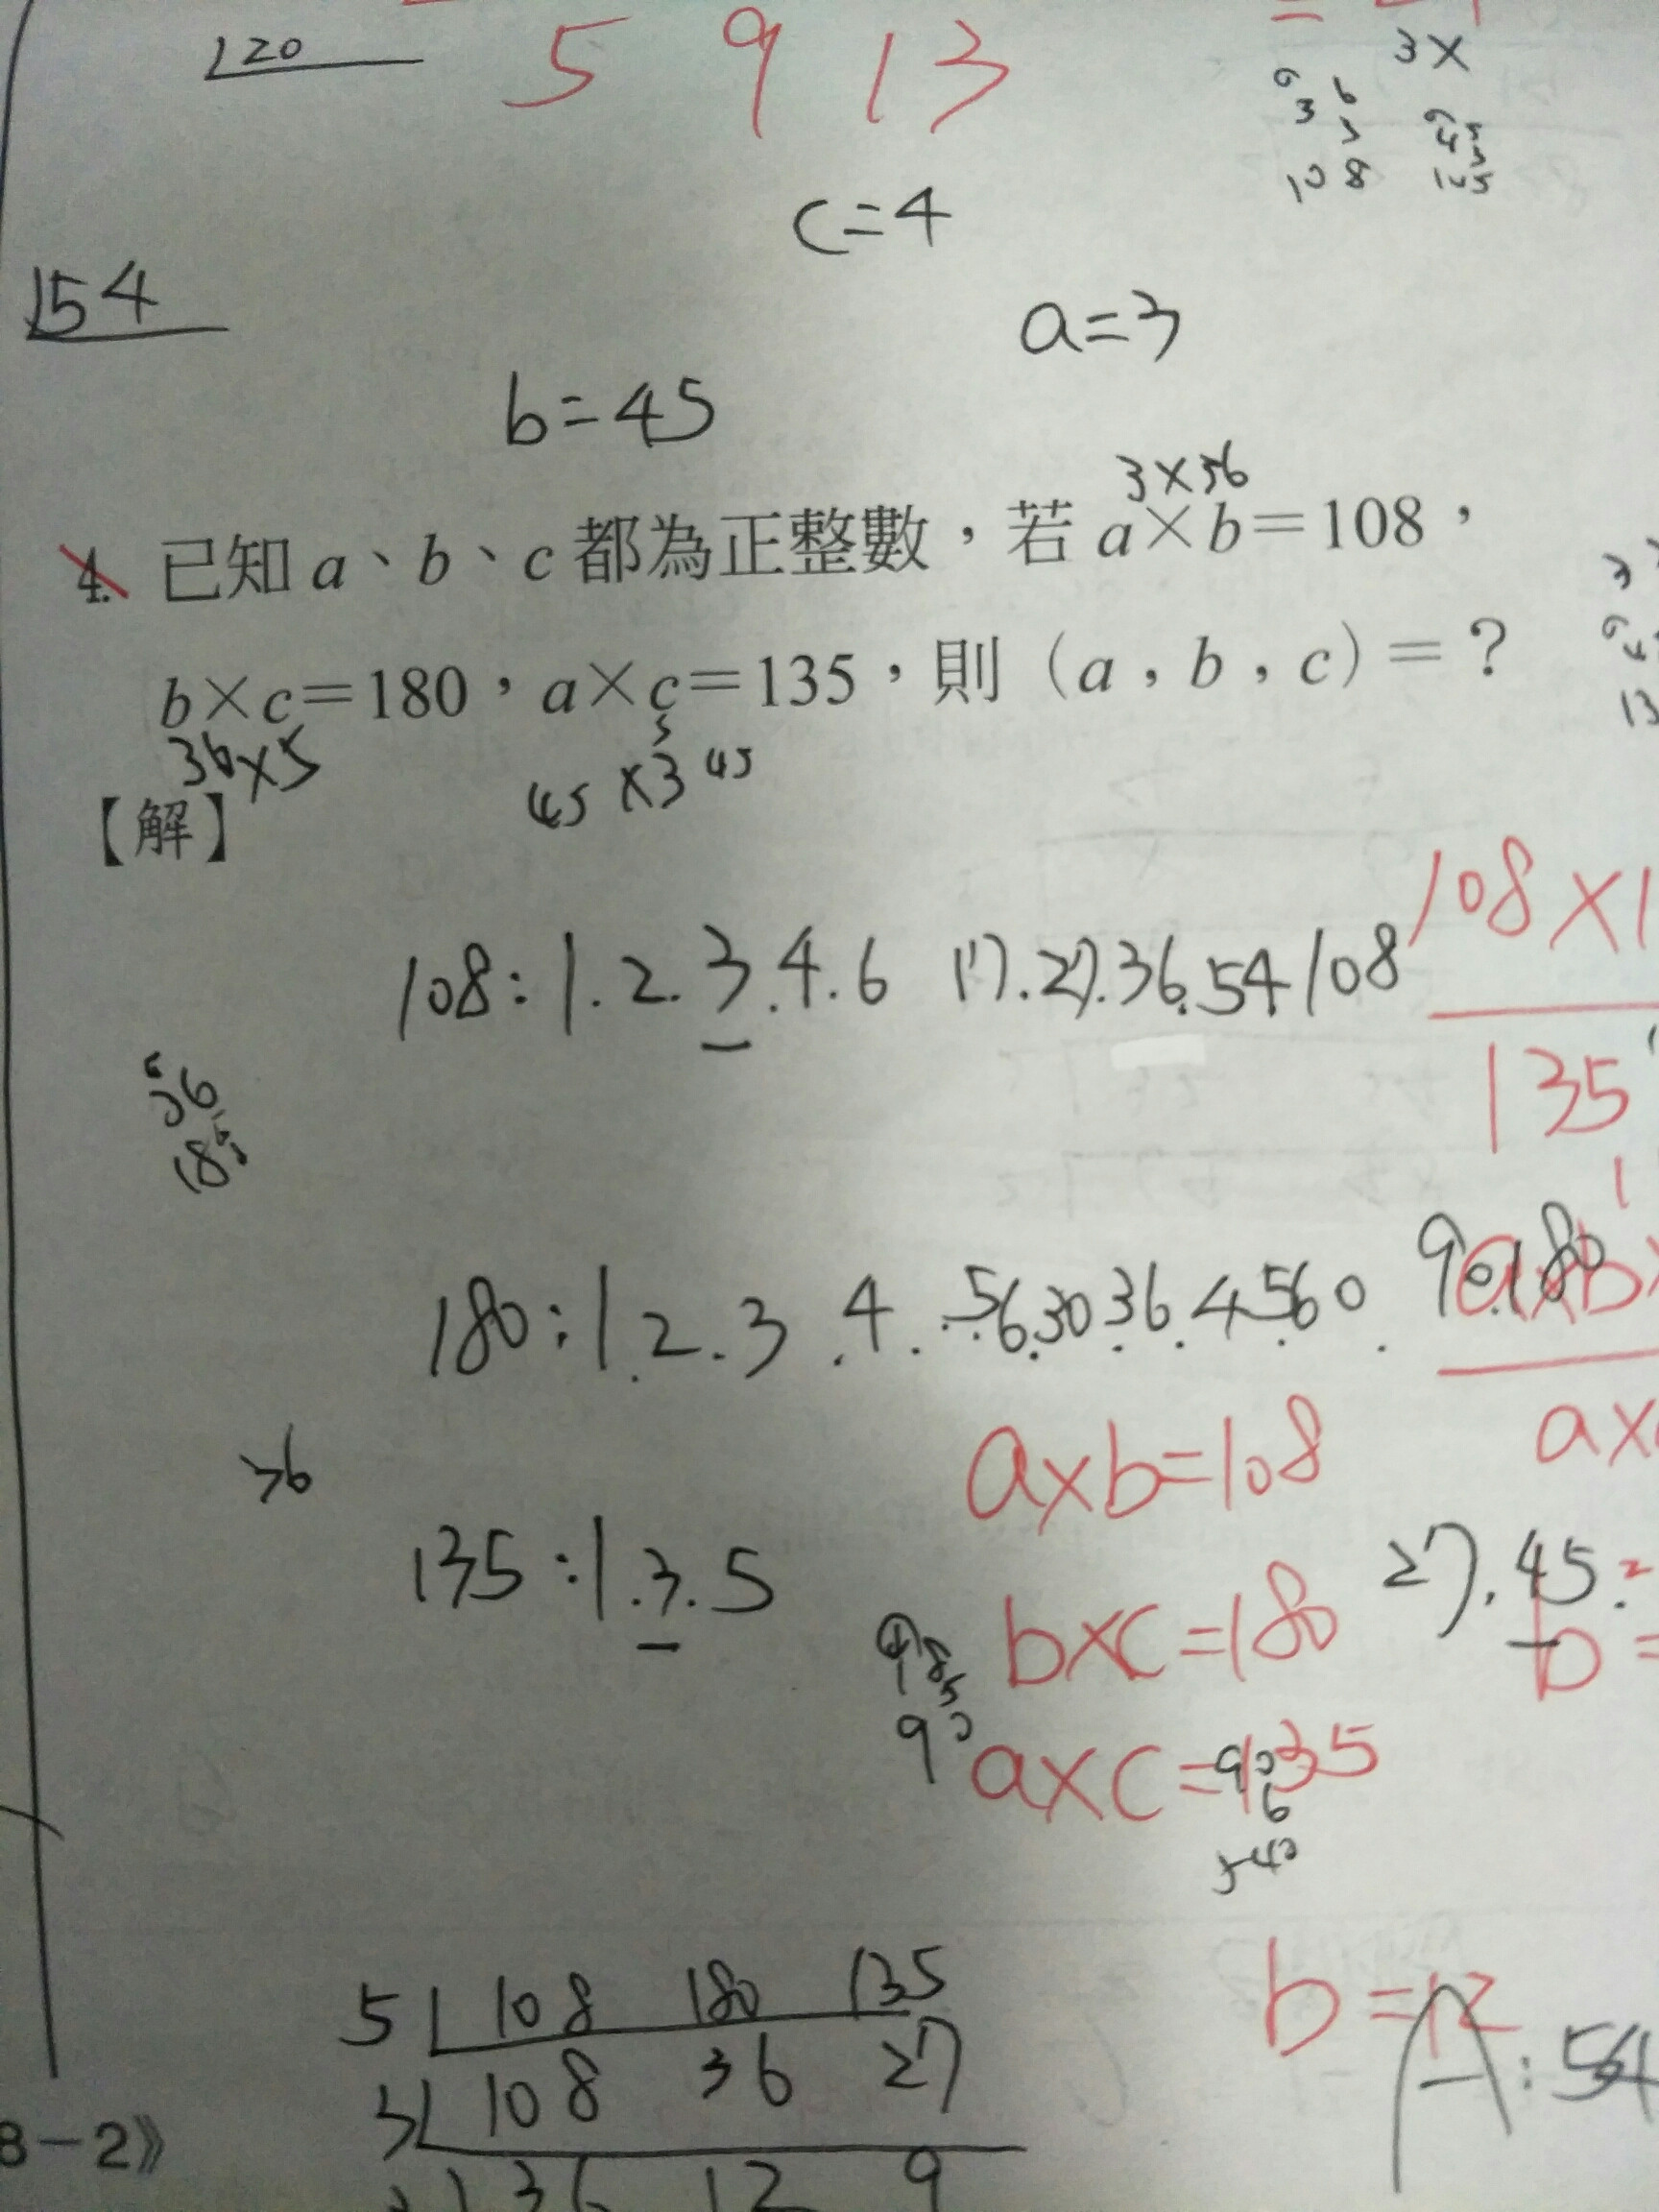 120
5 9 13
3×
36
3
108
45
3
c=4
154
a=3
b=45
3×36
4. 已知 a、b、c 都為正整數，若 a×b=108，
b×c=180，a×c=135，則（a，b，c）=？
36×5
45×3 45
【解】
108:1.2.3.4.6 17.27.36.54 108
108×1
135
36
180:1.2.3.4.5 6.30 36.45 60.90.180
a×b
a×
36
a×b=108
135:1.3.5
27.45.
b×c=180
b=
90
a×c=135
90
6
540
5 108 180 135
b=12
3 108 36 27
:54
8-2》
36 12 9